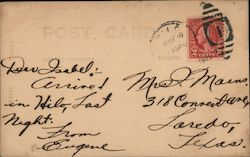 POST CARD
Dear Isabel:
Arrived
in Hilo, Last
Night.
From
Eugene
Mrs. F. Mains
318 Convent Ave,
Laredo,
Texas.